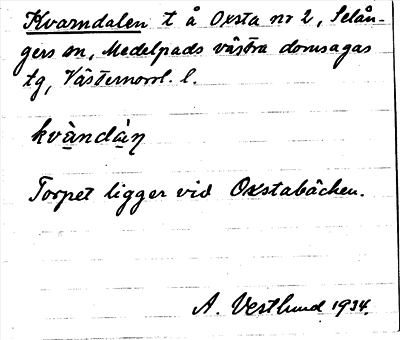 Kvarndalen t å Oxsta nr 2, Selån-
gers sn, Medelpads västra domsagas
tg, Västernorrl. l.
kvàndàn̥
Torpet ligger vid Oxstabäcken.
A. Vestlund 1934.